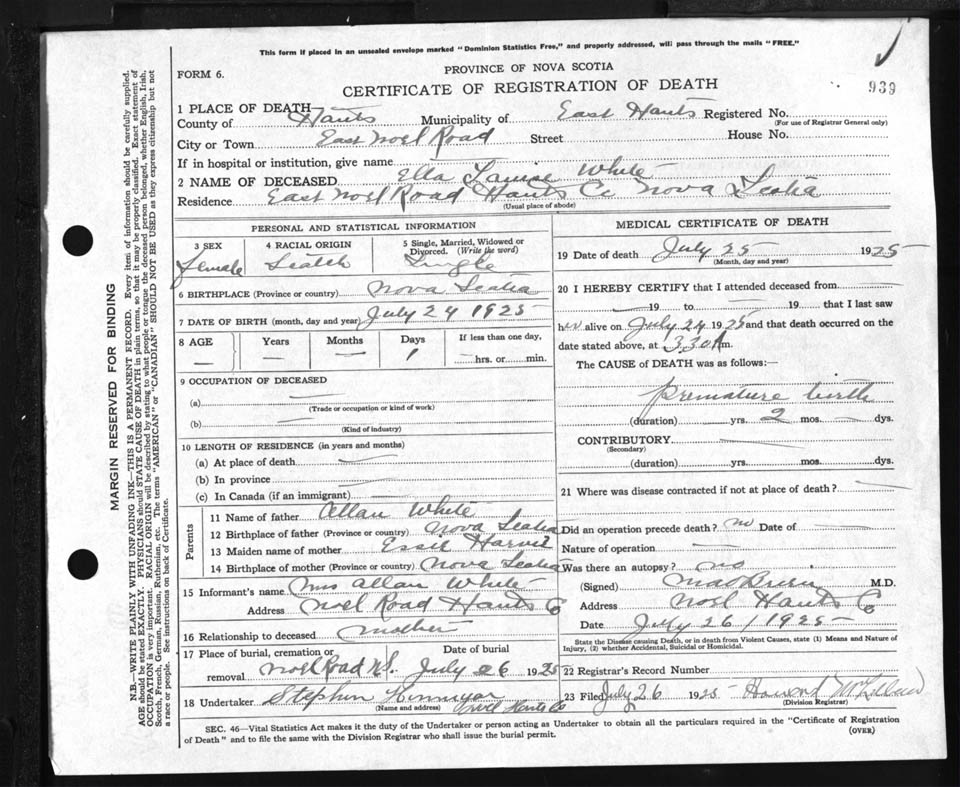 This form if placed in an unsealed envelope marked "Dominion Statistics Free," and properly addressed, will pass through the mails "FREE."
FORM 6.
PROVINCE OF NOVA SCOTIA
CERTIFICATE OF REGISTRATION OF DEATH
939
1 PLACE OF DEATH
County of Hants Municipality of East Hants Registered No.
(For use of Registrar General only)
City or Town East Noel Road Street House No.
If in hospital or institution, give name
2 NAME OF DECEASED Ella White
Residence East Noel Road Hants Co Nova Scotia
(Usual place of abode)
PERSONAL AND STATISTICAL INFORMATION
3 SEX 4 RACIAL ORIGIN 5 Single, Married, Widowed or Divorced. (Write the word)
Female Scotch Single
6 BIRTHPLACE (Province or country) Nova Scotia
7 DATE OF BIRTH (month, day and year) July 24 1925
8 AGE Years Months Days If less than one day,
— — — 1 hrs. or min.
9 OCCUPATION OF DECEASED
(a) —
(Trade or occupation or kind of work)
(b) —
(Kind of industry)
10 LENGTH OF RESIDENCE (in years and months)
(a) At place of death —
(b) In province —
(c) In Canada (if an immigrant) —
Parents
11 Name of father Allan White
12 Birthplace of father (Province or country) Nova Scotia
13 Maiden name of mother Essie Harvie
14 Birthplace of mother (Province or country) Nova Scotia
15 Informant's name Mrs Allan White
Address Noel Road Hants Co
16 Relationship to deceased mother
17 Place of burial, cremation or removal Date of burial
Noel Road N.S. July 26 1925
18 Undertaker Stephen Noel Hants Co
(Name and address)
MEDICAL CERTIFICATE OF DEATH
19 Date of death July 25 1925
(Month, day and year)
20 I HEREBY CERTIFY that I attended deceased from —
19 to 19 that I last saw
her alive on July 24 1925 and that death occurred on
date stated above, at 3 30 A m.
The CAUSE of DEATH was as follows:—
Premature birth
(duration) yrs. 2 mos. dys.
CONTRIBUTORY —
(Secondary)
(duration) yrs. mos. dys.
21 Where was disease contracted if not at place of death? —
Did an operation precede death? no Date of —
Nature of operation —
Was there an autopsy? no
(Signed) M.D.
Address Noel Hants Co
Date July 26/1925
State the Disease causing Death, or in death from Violent Causes, state (1) Means and Nature of
Injury, (2) whether Accidental, Suicidal or Homicidal.
22 Registrar's Record Number
23 Filed July 26 1925 Howard
(Division Registrar)
SEC. 46—Vital Statistics Act makes it the duty of the Undertaker or person acting as Undertaker to obtain all the particulars required in the "Certificate of Registration
of Death" and to file the same with the Division Registrar who shall issue the burial permit.
(OVER)
MARGIN RESERVED FOR BINDING
N.B.—WRITE PLAINLY WITH UNFADING INK—THIS IS A PERMANENT RECORD. Every item of information should be carefully supplied.
AGE should be stated EXACTLY. PHYSICIANS should STATE CAUSE OF DEATH in plain terms, so that it may be properly classified. Exact statement of
OCCUPATION is very important. RACIAL ORIGIN will be described by stating to what people or tongue the deceased person belonged, whether English, Irish,
Scotch, French, German, Russian, Ruthenian, etc. The terms "AMERICAN" or "CANADIAN" SHOULD NOT BE USED as they express citizenship but not
a race or people. See instructions on back of Certificate.